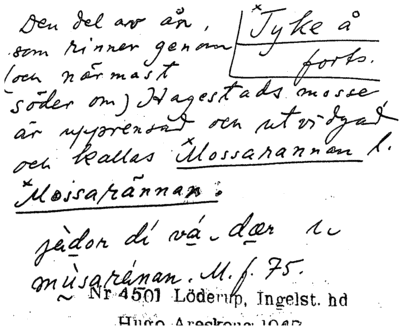 Den del av ån,
som rinner genom
(och närmast
söder om) Hagestads mosse
är upprensad och utvidgad
och kallas ˣMossarannan l.
ˣMossarännan.
ˣTyke å
forts.
jàdor dí vá dær u
mùsarénan. M. f. 75.
Nr 4501 Löderup, Ingelst. hd
Hugo Areskoug 1947